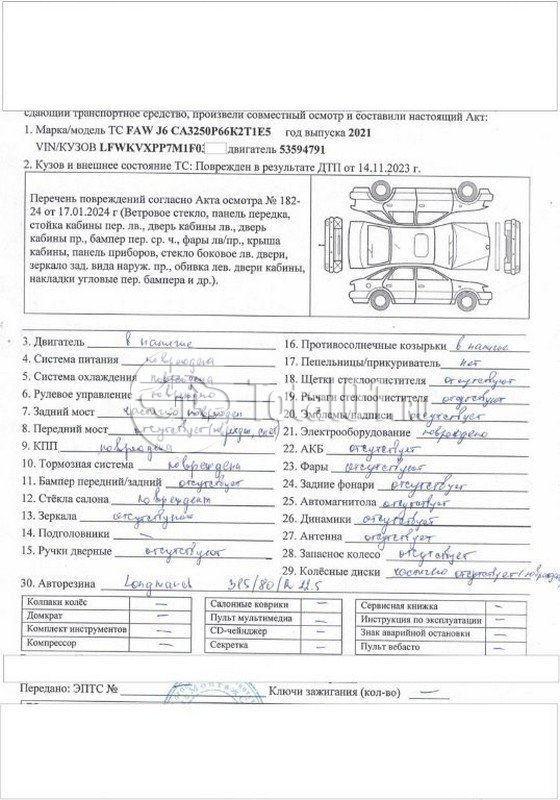 сдающий транспортное средство, произвели совместный осмотр и составили настоящий Акт:
1. Марка/модель ТС FAW J6 CA3250P66K2T1E5 год выпуска 2021
VIN/КУЗОВ LFWKVXPP7M1F0 двигатель 53594791
2. Кузов и внешнее состояние ТС: Поврежден в результате ДТП от 14.11.2023 г.
Перечень повреждений согласно Акта осмотра № 182-
24 от 17.01.2024 г (Ветровое стекло, панель передка,
стойка кабины пер. лв., дверь кабины лв., дверь
кабины пр., бампер пер. ср. ч., фары лв/пр., крыша
кабины, панель приборов, стекло боковое лв. двери,
зеркало зад. вида наруж. пр., обивка лев. двери кабины,
накладки угловые пер. бампера и др.).
3. Двигатель в наличие
4. Система питания повреждена
5. Система охлаждения повреждена
6. Рулевое управление повреждено
7. Задний мост частично поврежден
8. Передний мост отсутствует
9. КПП повреждена
10. Тормозная система повреждена
11. Бампер передний/задний отсутствует
12. Стёкла салона поврежден
13. Зеркала отсутствуют
14. Подголовники —
15. Ручки дверные отсутствуют
16. Противосолнечные козырьки в наличие
17. Пепельницы/прикуриватель нет
18. Щетки стеклоочистителя отсутствуют
19. Рычаги стеклоочистителя отсутствуют
20. Эмблемы/надписи отсутствует
21. Электрооборудование повреждено
22. АКБ отсутствует
23. Фары отсутствует
24. Задние фонари отсутствует
25. Автомагнитола отсутствует
26. Динамики отсутствует
27. Антенна отсутствует
28. Запасное колесо отсутствует
29. Колёсные диски частично отсутствует
30. Авторезина Longmarch 385/80/R 22.5
Колпаки колёс — Салонные коврики — Сервисная книжка —
Домкрат — Пульт мультимедиа — Инструкция по эксплуатации —
Комплект инструментов — CD-чейнджер — Знак аварийной остановки —
Компрессор — Секретка — Пульт вебасто —
Передано: ЭПТС № Ключи зажигания (кол-во) —